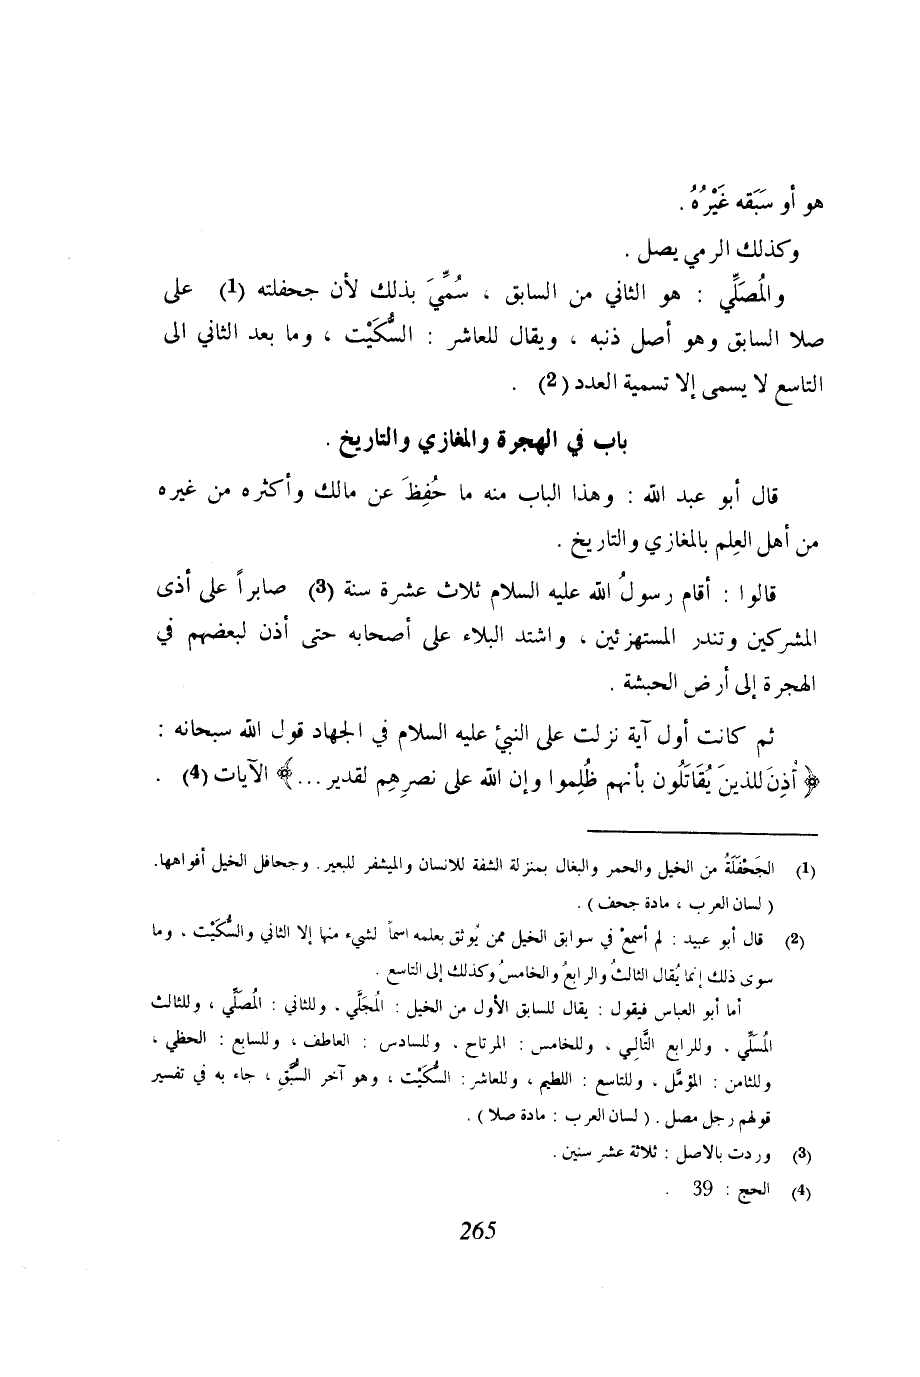 هو أو سَبَقه غَيْرُهُ .
وكذلك الرمي يصل .
والمُصَلِّي : هو الثاني من السابق ، سُمِّيَ بذلك لأن جحفلته (1) على
صلا السابق وهو أصل ذنبه ، ويقال للعاشر : السُّكَيْت ، وما بعد الثاني الى
التاسع لا يسمى إلا تسمية العدد (2) .
باب في الهجرة والمغازي والتاريخ .
قال أبو عبد الله : وهذا الباب منه ما حُفِظَ عن مالك وأكثره من غيره
من أهل العِلم بالمغازي والتاريخ .
قالوا : أقام رسولُ الله عليه السلام ثلاث عشرة سنة (3) صابراً على أذى
المشركين وتندر المستهزئين ، واشتد البلاء على أصحابه حتى أذن لبعضهم في
الهجرة إلى أرض الحبشة .
ثم كانت أول آية نزلت على النبيْ عليه السلام في الجهاد قول الله سبحانه :
﴿ أُذِنَ للذينَ يُقَاتَلُون بأنهم ظُلِموا وإن الله على نصرِهِم لقدير ... ﴾ الآيات (4) .
(1) الجَحْفَلَةُ من الخيل والحمر والبغال بمنزلة الشفة للانسان والمِشفر للبعير . وجحافل الخيل أفواهها.
( لسان العرب ، مادة جحف ) .
(2) قال أبو عبيد : لم أسمعْ في سوابق الخيل ممن يُوثق بعلمه اسماً لشيء منها إلا الثاني والسُّكَيْت ، وما
سوى ذلك إنما يُقال الثالثُ والرابعُ والخامسُ وكذلك إلى التاسع .
أما أبو العباس فيقول : يقال للسابق الأول من الخيل : المُجَلَّي . وللثاني : المُصَلِّي ، وللثالث
المُسَلِّي . وللرابع التَّالِي ، وللخامس : المرتاح . وللسادس : العاطف ، وللسابع : الحظي ،
وللثامن : المؤمَّل . وللتاسع : اللطيم ، وللعاشر : السُّكَيْت ، وهو آخر السُّبَّقِ ، جاء به في تفسير
قولهم رجل مصل . ( لسان العرب : مادة صلا ) .
(3) وردت بالاصل : ثلاثة عشر سنين .
(4) الحج : 39 .
265